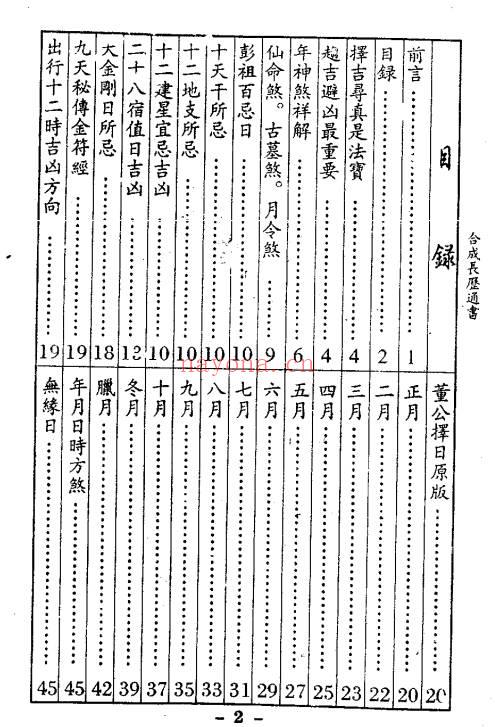 合成長歷通書
目錄
前言 1
目錄 2
擇吉尋真是法寶 4
趨吉避凶最重要 4
年神煞祥解 6
仙命煞。古墓煞。月令煞 9
彭祖百忌日 10
十天干所忌 10
十二地支所忌 10
十二建星宜忌吉凶 10
二十八宿值日吉凶 13
大金剛日所忌 18
九天秘傳金符經 19
出行十二時吉凶方向 19
董公擇日原版 20
正月 20
二月 22
三月 23
四月 25
五月 27
六月 29
七月 31
八月 33
九月 35
十月 37
冬月 39
臘月 42
年月日時方煞 45
無緣日 45
- 2 -
nayona.cn